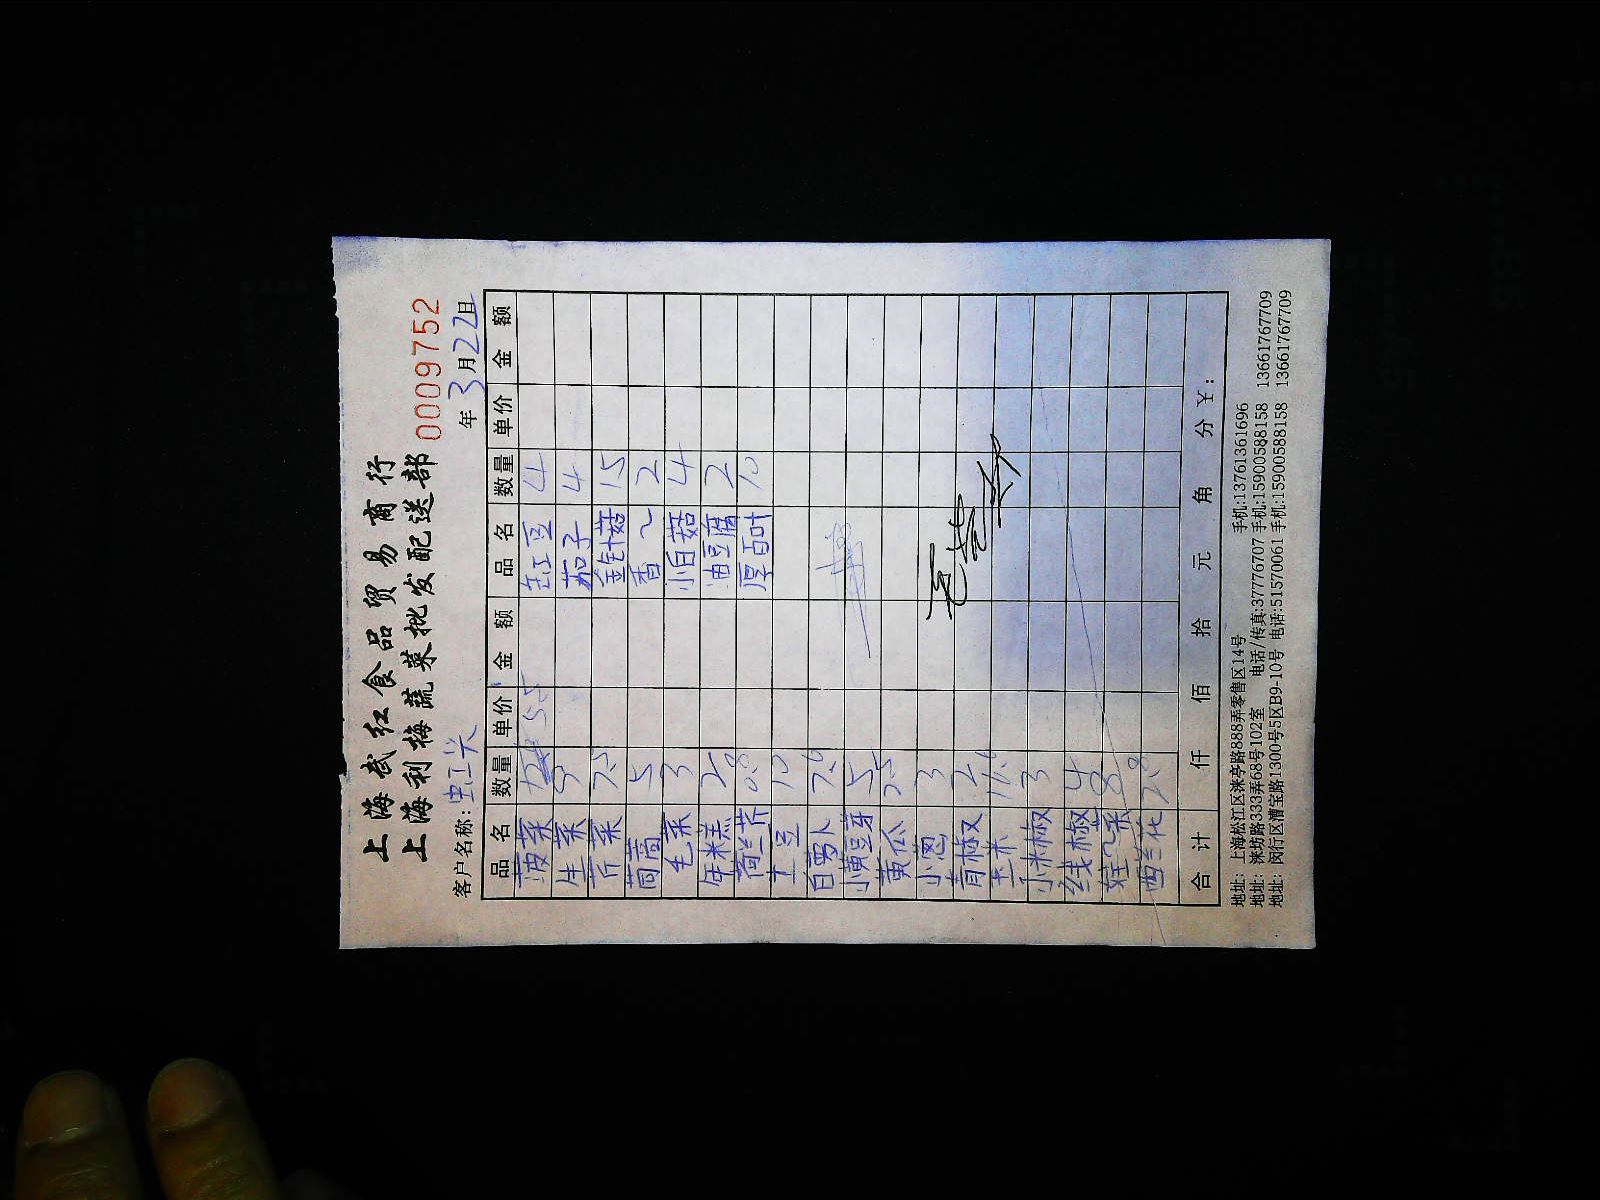 上海武红食品贸易商行
上海利梅蔬菜批发配送部
0009752
客户名称: 虹兴 年 3 月 22 日
品名 数量 单价 金额 品名 数量 单价 金额
菠菜 5.5 缸豆 4
生菜 5 茄子 4
芹菜 7.5 金针菇 15
茼蒿 5 香～ 2
毛菜 3 小白菇 4
年糕 20 油豆腐 2
荷兰芹 0.8 厚百叶 10
土豆 10
白萝卜
小黄豆芽 5
黄瓜 7.5
小葱 3
青椒 2
玉米
小米椒 3
线椒 4
娃～菜 8
西兰花 7.8
合计 仟 佰 拾 元 角 分 ¥:
地址: 上海松江区涞亭路888弄零售区14号 手机:13761361696
地址: 涞坊路333弄68号102室 电话/传真:37776707 手机:15900588158 13661767709
地址: 闵行区漕宝路1300号5区B9-10号 电话:51570061 手机:15900588158 13661767709